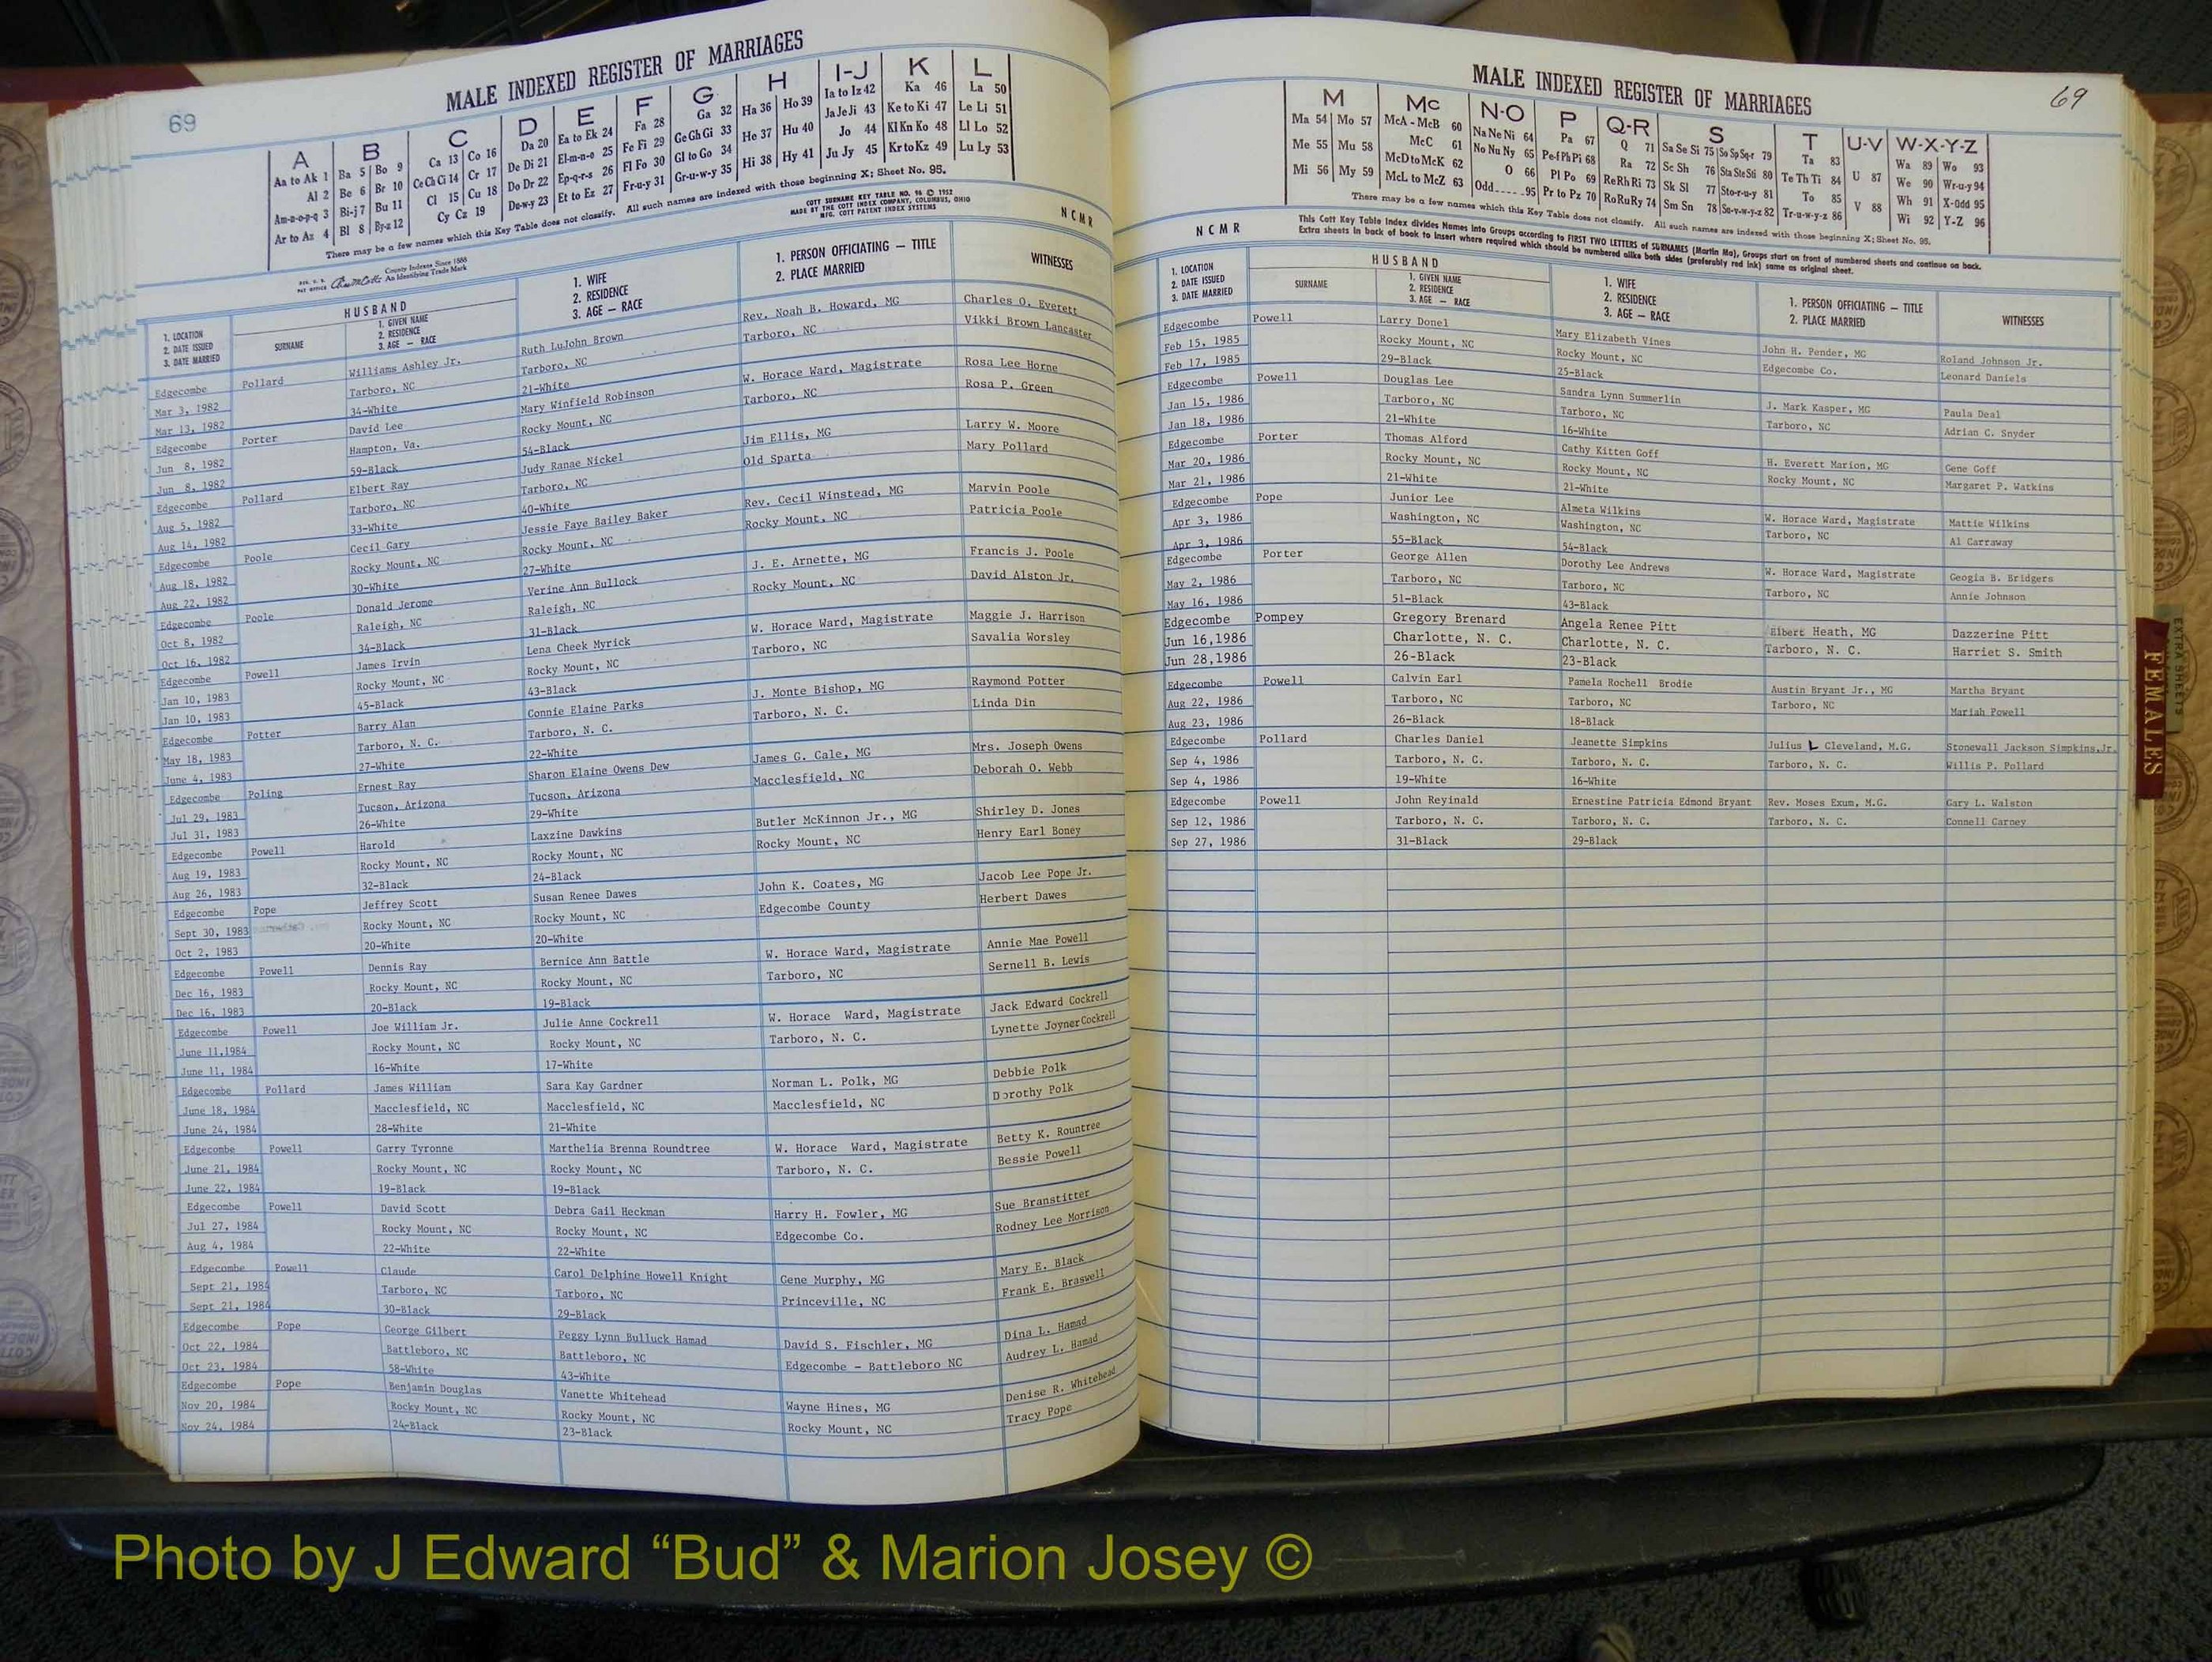 69
MALE INDEXED REGISTER OF MARRIAGES
A
Aa to Ak 1
Al 2
Am-n-o-p-q 3
Ar to Az 4
B
Ba 5 Bo 9
Be 6 Br 10
Bi-j 7 Bu 11
Bl 8 By-z 12
C
Ca 13 Co 16
Ce Ch Ci 14 Cr 17
Cl 15 Cu 18
Cy Cz 19
D
Da 20
De Di 21
Do Dr 22
Du-w-y 23
E
Ea to Ek 24
El-m-n-o 25
Ep-q-r-s 26
Et to Ez 27
F
Fa 28
Fe Fi 29
Fl Fo 30
Fr-u-y 31
G
Ga 32
Ge Gh Gi 33
Gl to Go 34
Gr-u-w-y 35
H
Ha 36 Ho 39
He 37 Hu 40
Hi 38 Hy 41
I-J
Ia to Iz 42
Ja Je Ji 43
Jo 44
Ju Jy 45
K
Ka 46
Ke to Ki 47
Kl Kn Ko 48
Kr to Kz 49
L
La 50
Le Li 51
Ll Lo 52
Lu Ly 53
There may be a few names which this Key Table does not classify. All such names are indexed with those beginning X; Sheet No. 95.
County Indexes Since 1888
An Identifying Trade Mark
COTT SURNAME KEY TABLE NO. 96 © 1952
MADE BY THE COTT INDEX COMPANY, COLUMBUS, OHIO
MFG. COTT PATENT INDEX SYSTEMS
NCMR
1. LOCATION
2. DATE ISSUED
3. DATE MARRIED
HUSBAND
SURNAME
1. GIVEN NAME
2. RESIDENCE
3. AGE — RACE
1. WIFE
2. RESIDENCE
3. AGE — RACE
1. PERSON OFFICIATING — TITLE
2. PLACE MARRIED
WITNESSES
Edgecombe Pollard Williams Ashley Jr. Ruth LuJohn Brown Rev. Noah B. Howard, MG Charles O. Everett
Mar 3, 1982 Tarboro, NC Tarboro, NC Tarboro, NC Vikki Brown Lancaster
Mar 13, 1982 34-White 21-White
Edgecombe Porter David Lee Mary Winfield Robinson W. Horace Ward, Magistrate Rosa Lee Horne
Jun 8, 1982 Hampton, Va. Rocky Mount, NC Tarboro, NC Rosa P. Green
Jun 8, 1982 59-Black 54-Black
Edgecombe Pollard Elbert Ray Judy Ranae Nickel Jim Ellis, MG Larry W. Moore
Aug 5, 1982 Tarboro, NC Tarboro, NC Old Sparta Mary Pollard
Aug 14, 1982 33-White 40-White
Edgecombe Poole Cecil Gary Jessie Faye Bailey Baker Rev. Cecil Winstead, MG Marvin Poole
Aug 18, 1982 Rocky Mount, NC Rocky Mount, NC Rocky Mount, NC Patricia Poole
Aug 22, 1982 30-White 27-White
Edgecombe Poole Donald Jerome Verine Ann Bullock J. E. Arnette, MG Francis J. Poole
Oct 8, 1982 Raleigh, NC Raleigh, NC Rocky Mount, NC David Alston Jr.
Oct 16, 1982 34-Black 31-Black
Edgecombe Powell James Irvin Lena Cheek Myrick W. Horace Ward, Magistrate Maggie J. Harrison
Jan 10, 1983 Rocky Mount, NC Rocky Mount, NC Tarboro, NC Savalia Worsley
Jan 10, 1983 45-Black 43-Black
Edgecombe Potter Barry Alan Connie Elaine Parks J. Monte Bishop, MG Raymond Potter
May 18, 1983 Tarboro, N. C. Tarboro, N. C. Tarboro, N. C. Linda Din
June 4, 1983 27-White 22-White
Edgecombe Poling Ernest Ray Sharon Elaine Owens Dew James G. Cale, MG Mrs. Joseph Owens
Jul 29, 1983 Tucson, Arizona Tucson, Arizona Macclesfield, NC Deborah O. Webb
Jul 31, 1983 26-White 29-White
Edgecombe Powell Harold Laxzine Dawkins Butler McKinnon Jr., MG Shirley D. Jones
Aug 19, 1983 Rocky Mount, NC Rocky Mount, NC Rocky Mount, NC Henry Earl Boney
Aug 26, 1983 32-Black 24-Black
Edgecombe Pope Jeffrey Scott Susan Renee Dawes John K. Coates, MG Jacob Lee Pope Jr.
Sept 30, 1983 Rocky Mount, NC Rocky Mount, NC Edgecombe County Herbert Dawes
Oct 2, 1983 20-White 20-White
Edgecombe Powell Dennis Ray Bernice Ann Battle W. Horace Ward, Magistrate Annie Mae Powell
Dec 16, 1983 Rocky Mount, NC Rocky Mount, NC Tarboro, NC Sernell B. Lewis
Dec 16, 1983 20-Black 19-Black
Edgecombe Powell Joe William Jr. Julie Anne Cockrell W. Horace Ward, Magistrate Jack Edward Cockrell
June 11,1984 Rocky Mount, NC Rocky Mount, NC Tarboro, N. C. Lynette Joyner Cockrell
June 11, 1984 16-White 17-White
Edgecombe Pollard James William Sara Kay Gardner Norman L. Polk, MG Debbie Polk
June 18, 1984 Macclesfield, NC Macclesfield, NC Macclesfield, NC Dorothy Polk
June 24, 1984 28-White 21-White
Edgecombe Powell Garry Tyronne Marthelia Brenna Roundtree W. Horace Ward, Magistrate Betty K. Rountree
June 21, 1984 Rocky Mount, NC Rocky Mount, NC Tarboro, N. C. Bessie Powell
June 22, 1984 19-Black 19-Black
Edgecombe Powell David Scott Debra Gail Heckman Harry H. Fowler, MG Sue Branstitter
Jul 27, 1984 Rocky Mount, NC Rocky Mount, NC Edgecombe Co. Rodney Lee Morrison
Aug 4, 1984 22-White 22-White
Edgecombe Powell Claude Carol Delphine Howell Knight Gene Murphy, MG Mary E. Black
Sept 21, 1984 Tarboro, NC Tarboro, NC Princeville, NC Frank E. Braswell
Sept 21, 1984 30-Black 29-Black
Edgecombe Pope George Gilbert Peggy Lynn Bulluck Hamad David S. Fischler, MG Dina L. Hamad
Oct 22, 1984 Battleboro, NC Battleboro, NC Edgecombe - Battleboro NC Audrey L. Hamad
Oct 23, 1984 58-White 43-White
Edgecombe Pope Benjamin Douglas Vanette Whitehead Wayne Hines, MG Denise R. Whitehead
Nov 20, 1984 Rocky Mount, NC Rocky Mount, NC Rocky Mount, NC Tracy Pope
Nov 24, 1984 24-Black 23-Black
MALE INDEXED REGISTER OF MARRIAGES
69
M
Ma 54 Mo 57
Me 55 Mu 58
Mi 56 My 59
Mc
McA - McB 60
McC 61
McD to McK 62
McL to McZ 63
N-O
Na Ne Ni 64
No Nu Ny 65
O 66
Odd 95
P
Pa 67
Pe-f Ph Pi 68
Pl Po 69
Pr to Pz 70
Q-R
Q 71
Ra 72
Re Rh Ri 73
Ro Ru Ry 74
S
Sa Se Si 75 So Sp Sq-r 79
Sc Sh 76 Sta Ste Sti 80
Sk Sl 77 Sto-r-u-y 81
Sm Sn 78 Su-v-w-y-z 82
T
Ta 83
Te Th Ti 84
To 85
Tr-u-w-y-z 86
U-V
U 87
V 88
W-X-Y-Z
Wa 89 Wo 93
We 90 Wr-u-y 94
Wh 91 X-Odd 95
Wi 92 Y-Z 96
There may be a few names which this Key Table does not classify. All such names are indexed with those beginning X; Sheet No. 95.
NCMR
This Cott Key Table Index divides Names into Groups according to FIRST TWO LETTERS of SURNAMES (Martin Ma), Groups start on front of numbered sheets and continue on back.
Extra sheets in back of book to insert where required which should be numbered alike both sides (preferably red ink) same as original sheet.
1. LOCATION
2. DATE ISSUED
3. DATE MARRIED
HUSBAND
SURNAME
1. GIVEN NAME
2. RESIDENCE
3. AGE — RACE
1. WIFE
2. RESIDENCE
3. AGE — RACE
1. PERSON OFFICIATING — TITLE
2. PLACE MARRIED
WITNESSES
Edgecombe Powell Larry Donel Mary Elizabeth Vines John H. Pender, MG Roland Johnson Jr.
Feb 15, 1985 Rocky Mount, NC Rocky Mount, NC Edgecombe Co. Leonard Daniels
Feb 17, 1985 29-Black 25-Black
Edgecombe Powell Douglas Lee Sandra Lynn Summerlin J. Mark Kasper, MG Paula Deal
Jan 15, 1986 Tarboro, NC Tarboro, NC Tarboro, NC Adrian C. Snyder
Jan 18, 1986 21-White 16-White
Edgecombe Porter Thomas Alford Cathy Kitten Goff H. Everett Marion, MG Gene Goff
Mar 20, 1986 Rocky Mount, NC Rocky Mount, NC Rocky Mount, NC Margaret P. Watkins
Mar 21, 1986 21-White 21-White
Edgecombe Pope Junior Lee Almeta Wilkins W. Horace Ward, Magistrate Mattie Wilkins
Apr 3, 1986 Washington, NC Washington, NC Tarboro, NC Al Carraway
Apr 3, 1986 55-Black 54-Black
Edgecombe Porter George Allen Dorothy Lee Andrews W. Horace Ward, Magistrate Geogia B. Bridgers
May 2, 1986 Tarboro, NC Tarboro, NC Tarboro, NC Annie Johnson
May 16, 1986 51-Black 43-Black
Edgecombe Pompey Gregory Brenard Angela Renee Pitt Elbert Heath, MG Dazzerine Pitt
Jun 16,1986 Charlotte, N. C. Charlotte, N. C. Tarboro, N. C. Harriet S. Smith
Jun 28,1986 26-Black 23-Black
Edgecombe Powell Calvin Earl Pamela Rochell Brodie Austin Bryant Jr., MG Martha Bryant
Aug 22, 1986 Tarboro, NC Tarboro, NC Tarboro, NC Mariah Powell
Aug 23, 1986 26-Black 18-Black
Edgecombe Pollard Charles Daniel Jeanette Simpkins Julius L Cleveland, M.G. Stonewall Jackson Simpkins,Jr.
Sep 4, 1986 Tarboro, N. C. Tarboro, N. C. Tarboro, N. C. Willis P. Pollard
Sep 4, 1986 19-White 16-White
Edgecombe Powell John Reyinald Ernestine Patricia Edmond Bryant Rev. Moses Exum, M.G. Gary L. Walston
Sep 12, 1986 Tarboro, N. C. Tarboro, N. C. Tarboro, N. C. Connell Carney
Sep 27, 1986 31-Black 29-Black
EXTRA SHEETS
FEMALES
Photo by J Edward “Bud” & Marion Josey ©